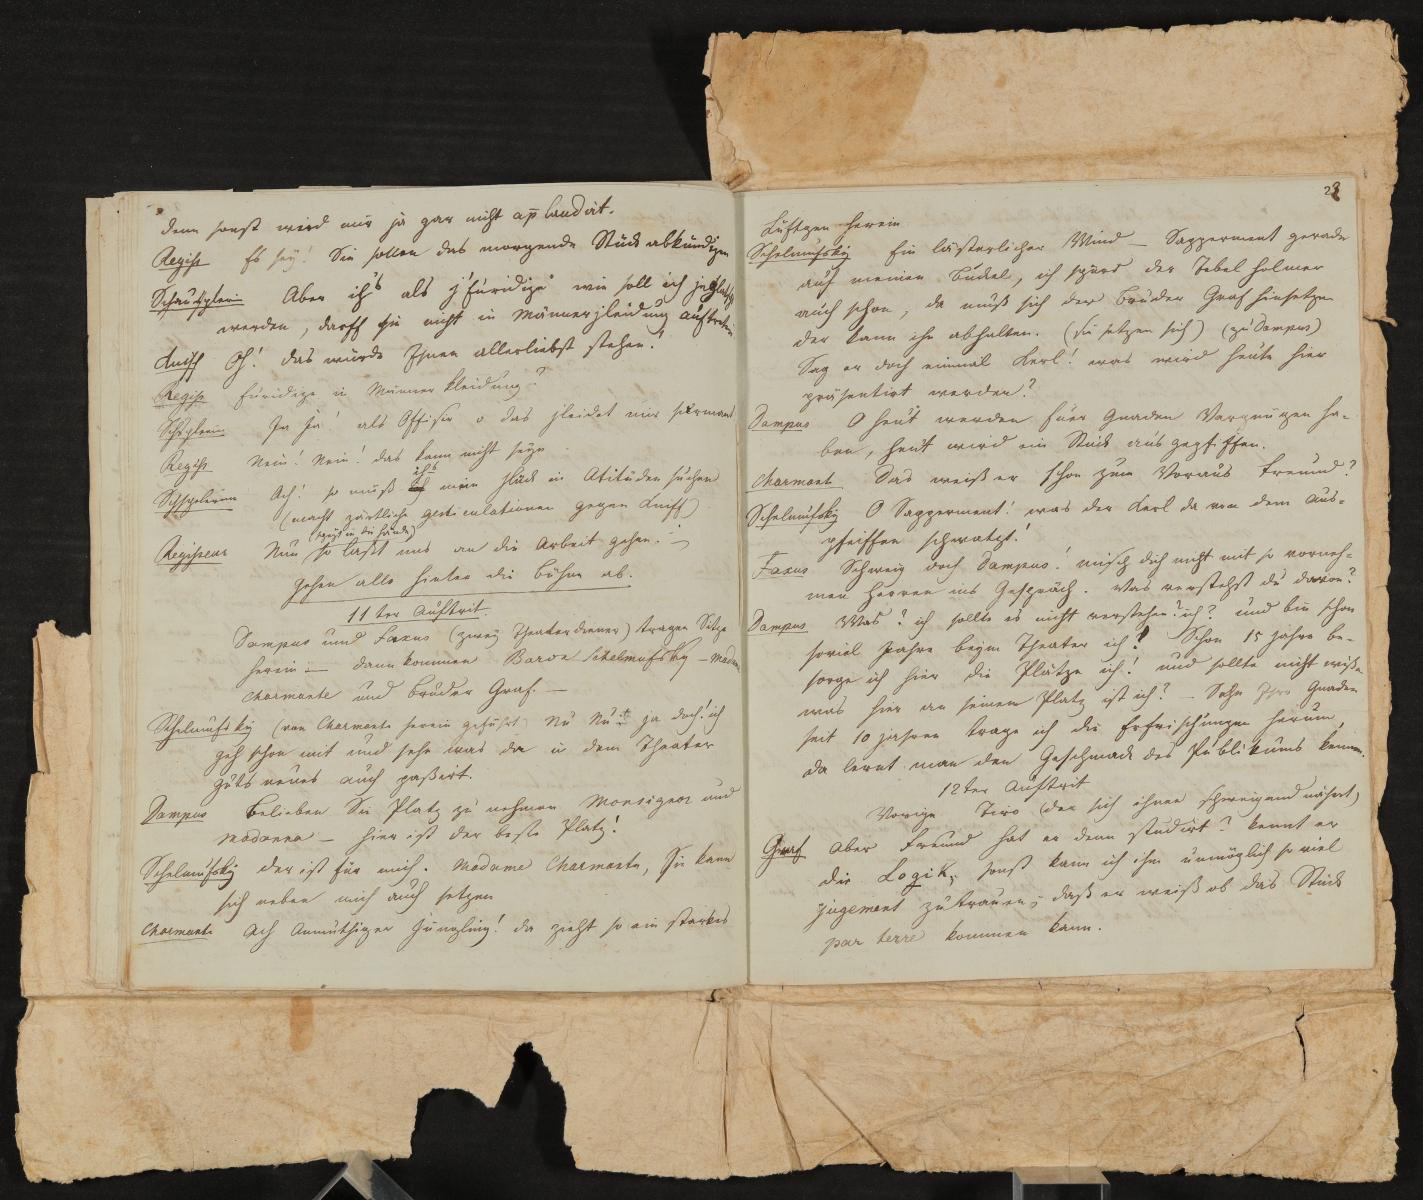 denn sonst wird mir ja gar nicht aplaudirt.
Regiss Es sey! Sie sollen das morgende Stück abkündigen
Schauspileri Aber ich als Euridize wie soll ich
werden, darff Sie nicht in Männerkleidung auftreten
Kniff Oh! das würde Ihnen allerliebst stehen!
Regiss Euridize in Männer Kleidung?
Schsplerin Ja Ja als Offizir o das kleidet mir scharmant
Regiss Nein! Nein! das kann nicht seyn
Schspielerinn Ach! so muß ich mein Glück in Atitüden suchen
(macht zärtliche gesticulationen gegen Kniff)
in die Hände)
Regisseur Nun so laßt uns an die Arbeit gehen. –
gehen alle hinter die Bühne ab.
11ter Auftrit.
Dampus und Faxus (zwey Theaterdiener) tragen Sitze
herein – dann kommen Baron Schelmufsky – Madam
Charmante und Bruder Graf. –
Schelmufsky (von Charmante herein geführt) Nu Nu ja doch! ich
geh schon mit und sehe was da in dem Theater
guts neues auch paßirt.
Dampus Belieben Sie Platz zu nehmen Monsignor und
Madonna – hier ist der beste Platz!
Schelmufsky der ist für mich. Madame Charmante, Sie kann
sich neben mich auch setzen
Charmante Ach Anmuthiger Jüngling! da zieht so ein starkes
28
Lüftgen herein
Schelmufsky Ein lästerlicher Wind – Sapperment gerade
auf meinen Buckel, ich spürs der Tebel holmer
auch schon, da muß sich der Bruder Graf hinsetzen
der kann ihn abhalten. (Sie setzen sich) (zu Dampus)
Sag er doch einmal Kerl! was wird heute hier
präsentirt werden?
Dampus O heut werden Euer Gnaden Vergnügen ha-
ben, heut wird ein Stück ausgepfiffen.
Charmante Das weiß er schon zum Voraus Freund?
Schelmufsky O Sapperment! was der Kerl da von dem aus-
pfeiffen schwatzt!
Faxus Schweig doch Dampus! misch dich nicht mit so vorneh-
men Herren ins Gespräch. Was verstehst du davon?
Dampus Was? ich sollte es nicht verstehen? ich? und bin schon
soviel Jahre beym Theater ich? Schon 15 Jahre be-
sorge ich hier die Plätze ich! und sollte nicht wißen
was hier an seinem Platz ist ich? – Sehn Ihro Gnaden
seit 10 Jahren trage ich die Erfrischungen herum,
da lernt man den Geschmack des Publikums kennen.
12ter Auftrit
Vorige Tiro (der sich ihnen schweigend nähert)
Graf Aber Freund hat er denn studirt? kennt er
die Logik, sonst kann ich ihm unmöglich so viel
jugement zutrauen, daß er weiß ob das Stück
par terre kommen kann.